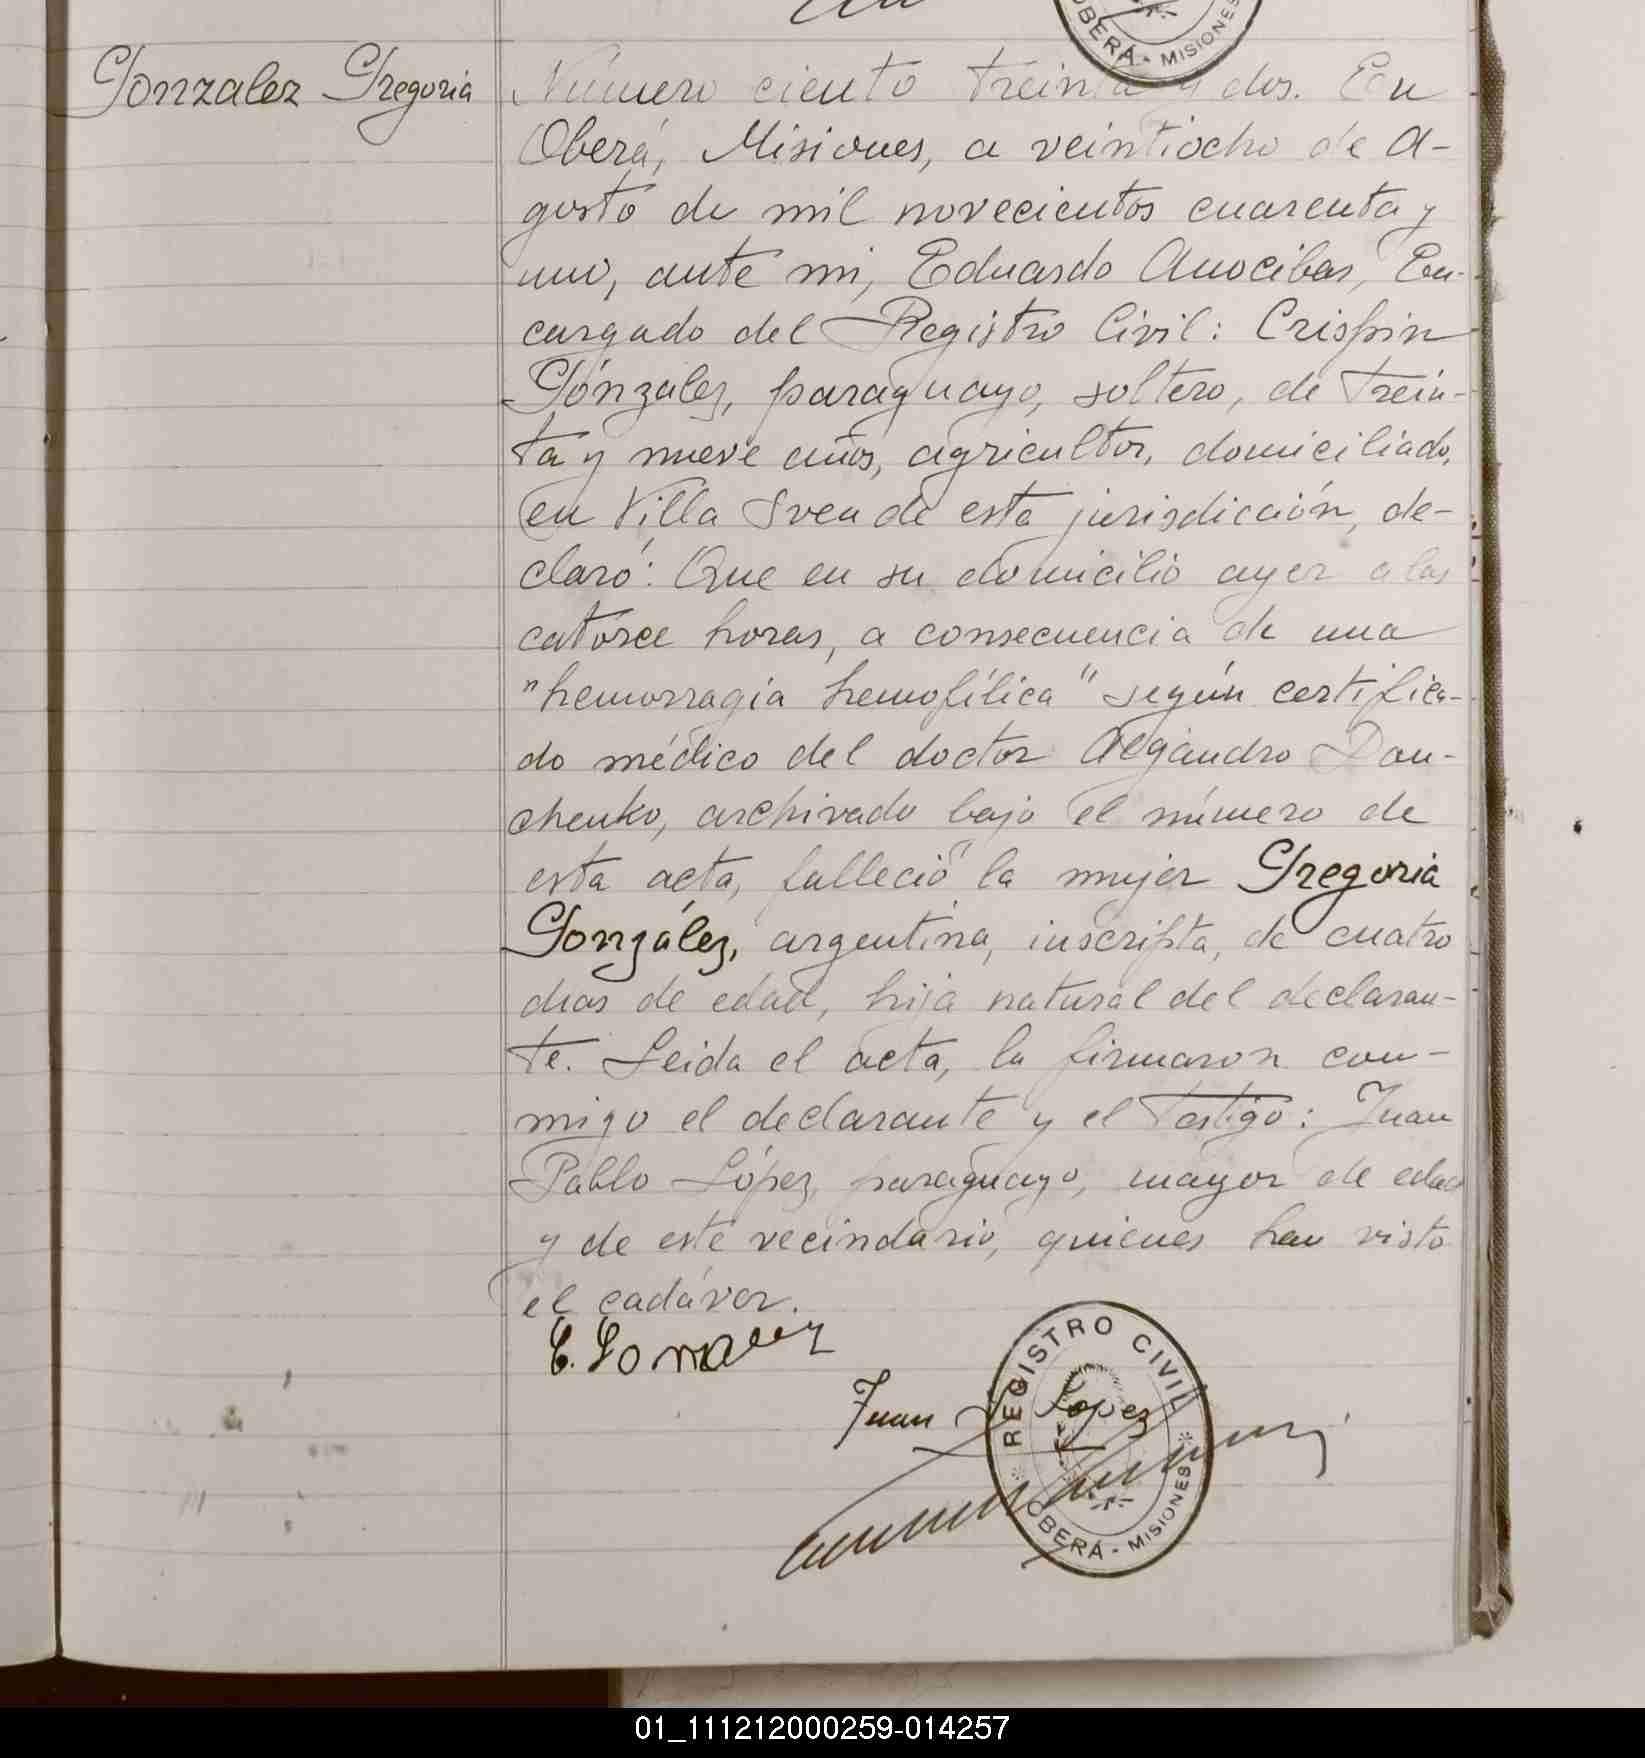 OBERÁ - MISIONES
Gonzalez Gregoria
Número ciento treinta y dos. En
Oberá, Misiones, a veintiocho de A-
gosto de mil novecientos cuarenta y
uno, ante mi, Eduardo Anocibar, En-
cargado del Registro Civil: Crispin
Gónzalez, paraguayo, soltero, de trein-
ta y nueve años, agricultor, domiciliado,
en Villa Svea de esta jurisdicción, de-
claró: Que en su domicilio ayer a las
catorce horas, a consecuencia de una
"hemorragia hemofílica" según certifica-
do médico del doctor Alejandro Dan-
chenko, archivado bajo el número de
esta acta, falleció la mujer Gregoria
González, argentina, inscripta, de cuatro
dias de edad, hija natural del declaran-
te. Leida el acta, la firmaron con-
migo el declarante y el testigo: Juan
Pablo López, paraguayo, mayor de edad
y de este vecindario, quienes han visto
el cadáver.
C. Gonzalez
Juan P. Lopez
REGISTRO CIVIL
OBERÁ - MISIONES
01_111212000259-014257